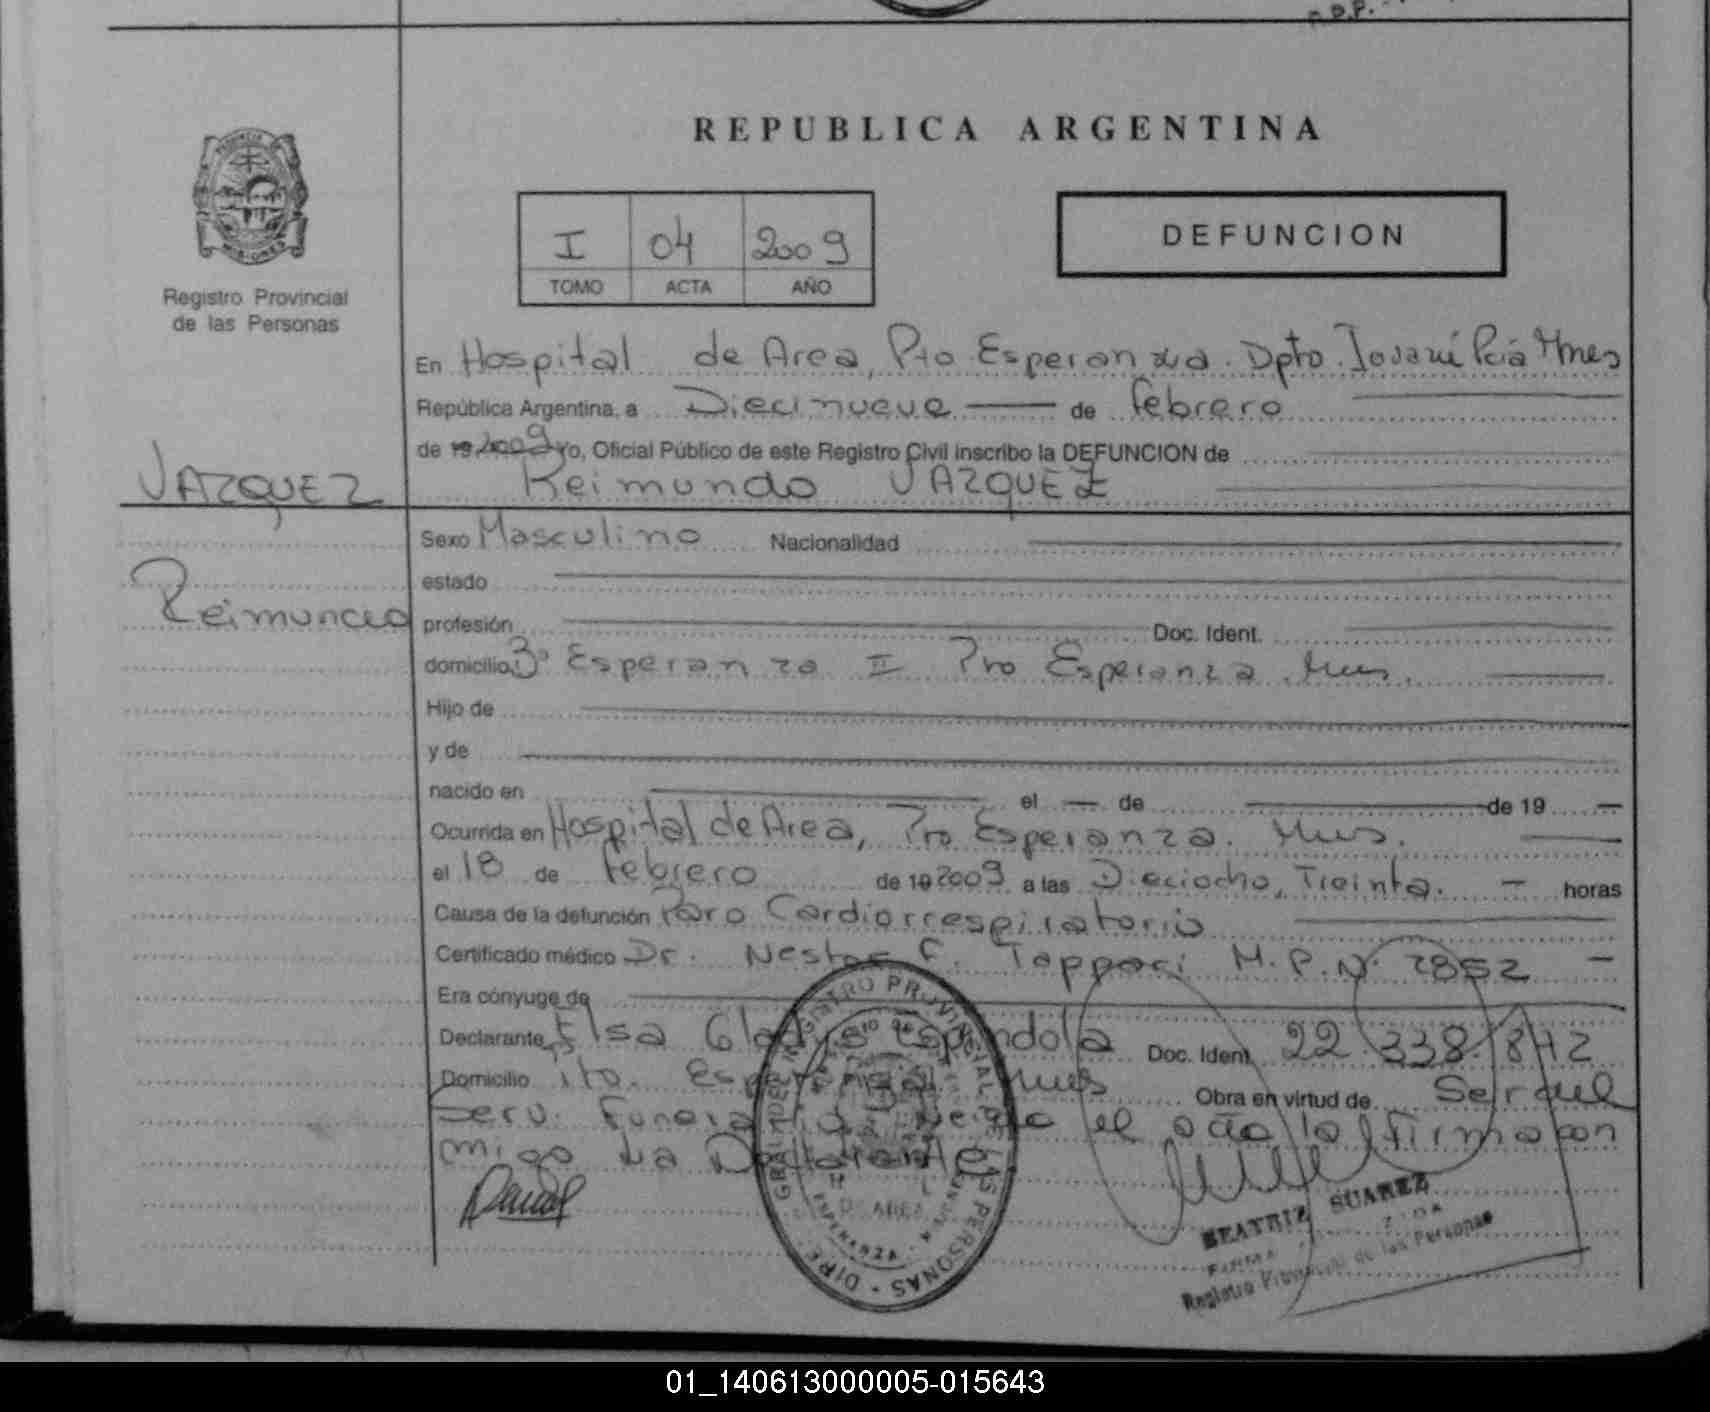 D.P.
REPUBLICA ARGENTINA
I 04 2009
TOMO ACTA AÑO
DEFUNCION
MISIONES
Registro Provincial
de las Personas
En Hospital de Area, Pto Esperanza. Dpto. Iguazú Pcia Mnes
República Argentina, a Diecinueve de febrero
de 19 2009 Yo, Oficial Público de este Registro Civil inscribo la DEFUNCION de
VAZQUEZ Reimundo VAZQUEZ
Sexo Masculino Nacionalidad
estado
Reimundo
profesión Doc. Ident.
domicilio Bº Esperanza II Pto Esperanza. Mnes.
Hijo de
y de
nacido en el de de 19
Ocurrida en Hospital de Area, Pto Esperanza. Mnes.
el 18 de febrero de 19 2009 a las Dieciocho, Treinta. horas
Causa de la defunción Paro Cardiorrespiratorio
Certificado médico Dr. Nestor F. Tappari M.P.N. 2852
Era cónyuge de
Declarante Elsa Gladys Espindola Doc. Ident. 22.338.842
Domicilio Pto. Esperanza Mnes Obra en virtud de Ser del
Serv. Funerario el acta la firma con
migo La Declarante
REGISTRO PROVINCIAL DE LAS PERSONAS
BEATRIZ SUAREZ
Registro Provincial de las Personas
01_140613000005-015643